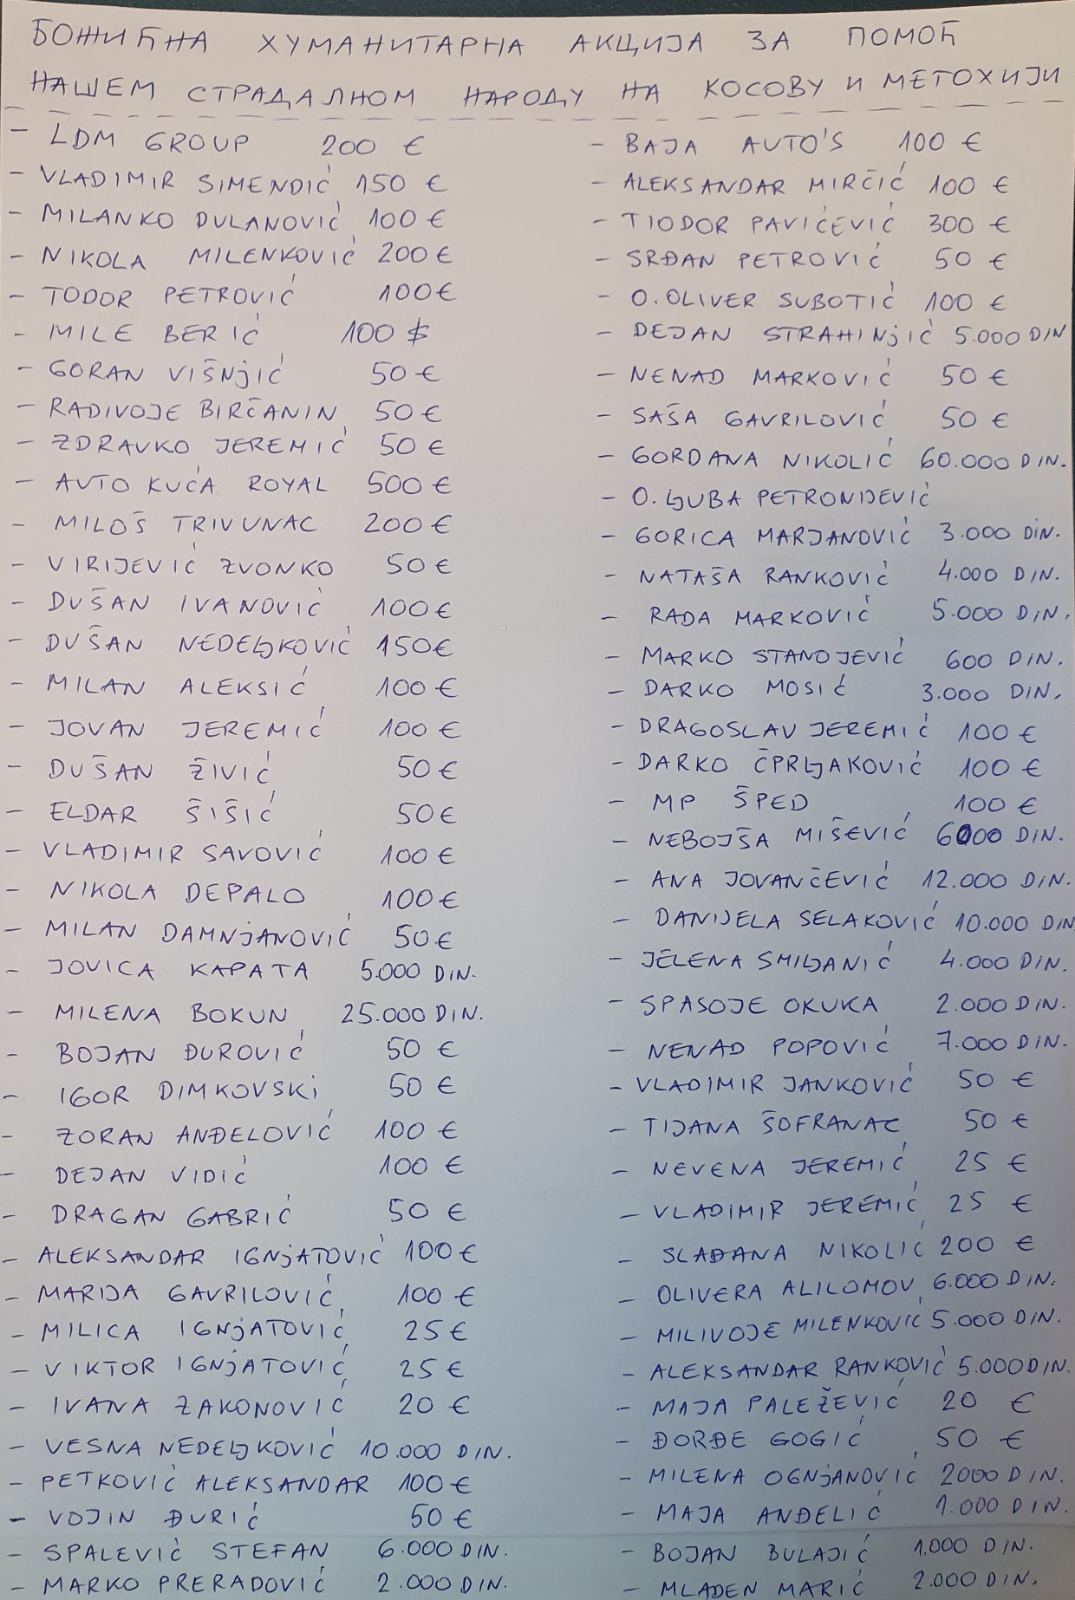 БОЖИЋНА ХУМАНИТАРНА АКЦИЈА ЗА ПОМОЋ
НАШЕМ СТРАДАЛНОМ НАРОДУ НА КОСОВУ И МЕТОХИЈИ
- LDM GROUP 200 €
- VLADIMIR SIMENDIĆ 150 €
- MILANKO DULANOVIĆ 100 €
- NIKOLA MILENKOVIĆ 200 €
- TODOR PETROVIĆ 100 €
- MILE BERIĆ 100 $
- GORAN VIŠNJIĆ 50 €
- RADIVOJE BIRČANIN 50 €
- ZDRAVKO JEREMIĆ 50 €
- AUTO KUĆA ROYAL 500 €
- MILOŠ TRIVUNAC 200 €
- VIRIJEVIĆ ZVONKO 50 €
- DUŠAN IVANOVIĆ 100 €
- DUŠAN NEDELJKOVIĆ 150 €
- MILAN ALEKSIĆ 100 €
- JOVAN JEREMIĆ 100 €
- DUŠAN ŽIVIĆ 50 €
- ELDAR ŠIŠIĆ 50 €
- VLADIMIR SAVOVIĆ 100 €
- NIKOLA DEPALO 100 €
- MILAN DAMNJANOVIĆ 50 €
- JOVICA KAPATA 5.000 DIN.
- MILENA BOKUN 25.000 DIN.
- BOJAN ĐUROVIĆ 50 €
- IGOR DIMKOVSKI 50 €
- ZORAN ANĐELOVIĆ 100 €
- DEJAN VIDIĆ 100 €
- DRAGAN GABRIĆ 50 €
- ALEKSANDAR IGNJATOVIĆ 100 €
- MARIJA GAVRILOVIĆ 100 €
- MILICA IGNJATOVIĆ 25 €
- VIKTOR IGNJATOVIĆ 25 €
- IVANA ZAKONOVIĆ 20 €
- VESNA NEDELJKOVIĆ 10.000 DIN.
- PETKOVIĆ ALEKSANDAR 100 €
- VOJIN ĐURIĆ 50 €
- SPALEVIĆ STEFAN 6.000 DIN.
- MARKO PRERADOVIĆ 2.000 DIN.
- BAJA AUTO'S 100 €
- ALEKSANDAR MIRČIĆ 100 €
- TIODOR PAVIĆEVIĆ 300 €
- SRĐAN PETROVIĆ 50 €
- O. OLIVER SUBOTIĆ 100 €
- DEJAN STRAHINJIĆ 5.000 DIN
- NENAD MARKOVIĆ 50 €
- SAŠA GAVRILOVIĆ 50 €
- GORDANA NIKOLIĆ 60.000 DIN.
- O. LJUBA PETRONIJEVIĆ
- GORICA MARJANOVIĆ 3.000 DIN.
- NATAŠA RANKOVIĆ 4.000 DIN.
- RADA MARKOVIĆ 5.000 DIN.
- MARKO STANOJEVIĆ 600 DIN.
- DARKO MOSIĆ 3.000 DIN.
- DRAGOSLAV JEREMIĆ 100 €
- DARKO ČPRLJAKOVIĆ 100 €
- MP ŠPED 100 €
- NEBOJŠA MIŠEVIĆ 6000 DIN.
- ANA JOVANČEVIĆ 12.000 DIN.
- DANIJELA SELAKOVIĆ 10.000 DIN
- JELENA SMILJANIĆ 4.000 DIN.
- SPASOJE OKUKA 2.000 DIN.
- NENAD POPOVIĆ 7.000 DIN.
- VLADIMIR JANKOVIĆ 50 €
- TIJANA ŠOFRANAC 50 €
- NEVENA JEREMIĆ 25 €
- VLADIMIR JEREMIĆ 25 €
- SLAĐANA NIKOLIĆ 200 €
- OLIVERA ALILOMOV 6.000 DIN.
- MILIVOJE MILENKOVIĆ 5.000 DIN.
- ALEKSANDAR RANKOVIĆ 5.000 DIN.
- MAJA PALEŽEVIĆ 20 €
- ĐORĐE GOGIĆ 50 €
- MILENA OGNJANOVIĆ 2000 DIN.
- MAJA ANĐELIĆ 1.000 DIN.
- BOJAN BULAJIĆ 1.000 DIN.
- MLADEN MARIĆ 2.000 DIN.